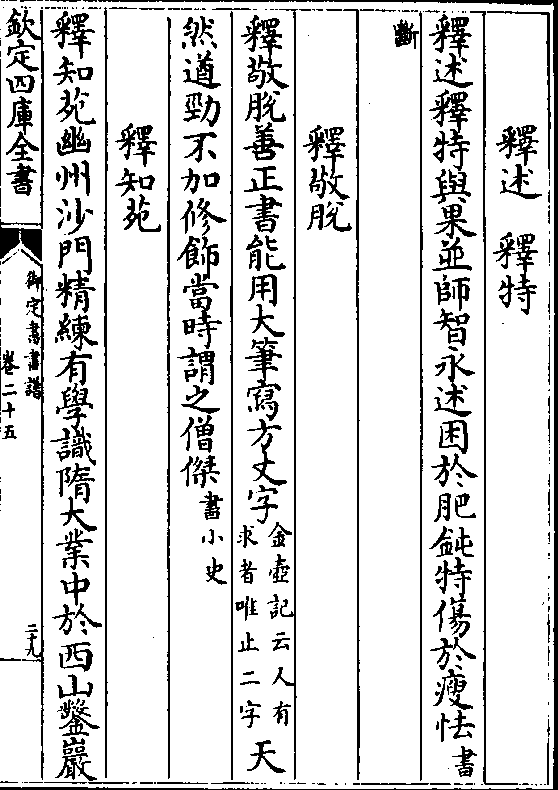 釋述　釋特
釋述釋特與果並師智永述困於肥鈍特傷於瘦怯書
斷
釋敬脫
釋敬脫善正書能用大筆寫方丈字金壺記云人有求者唯止二字天
然遒勁不加修飾當時謂之僧傑書小史
釋知苑
釋知苑幽州沙門精練有學識隋大業中於西山鑿巖
欽定四庫全書
御定書畫譜
卷二十五
二十九